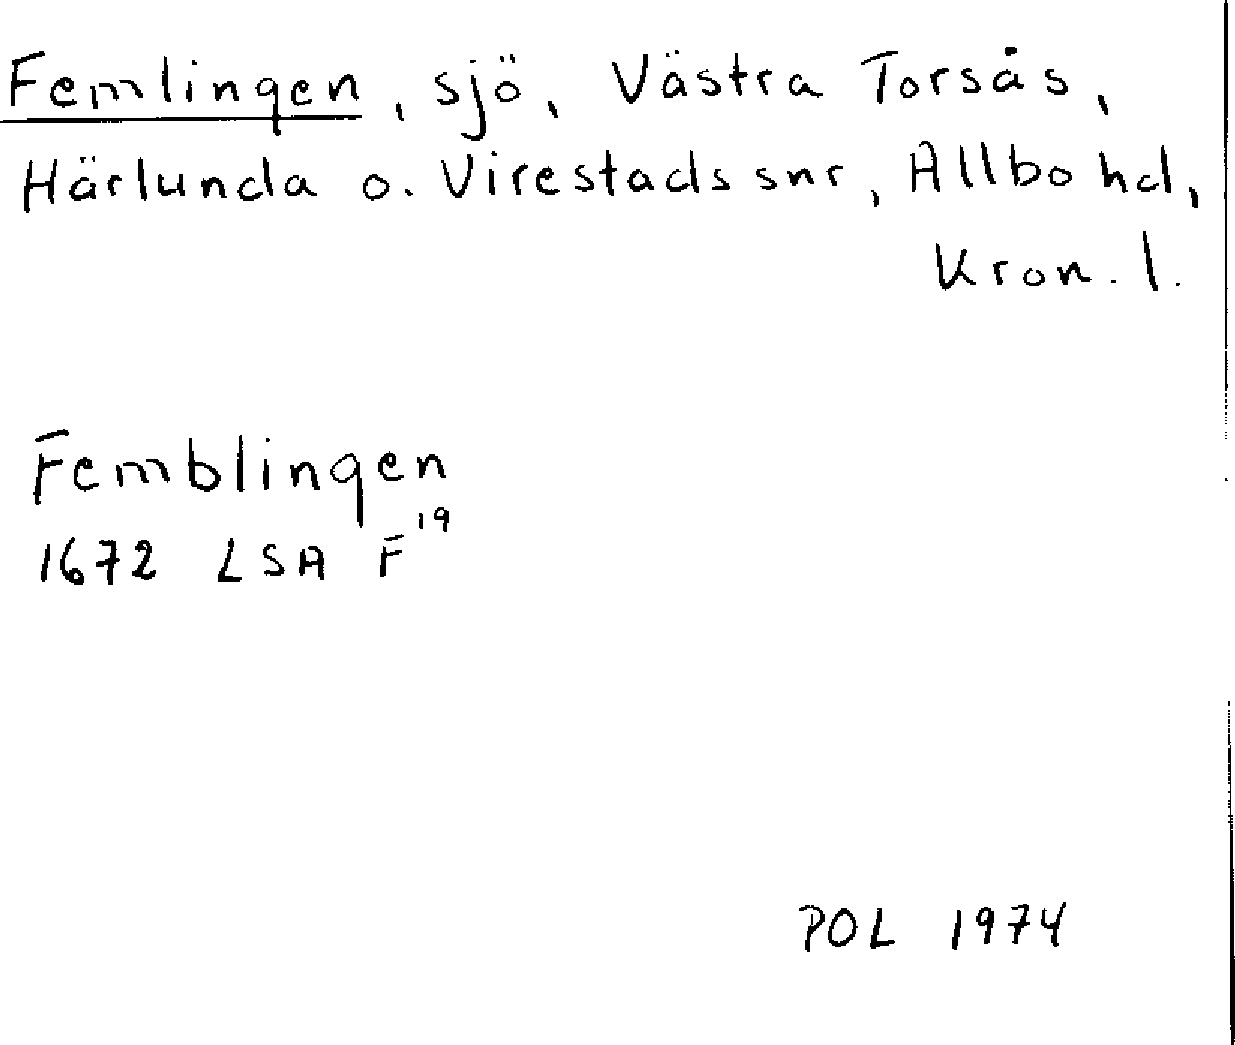 Femlingen, sjö, Västra Torsås,
Härlunda o. Virestads snr, Allbo hd,
Kron. l.
Femblingen
1672 LSA F¹⁹
POL 1974